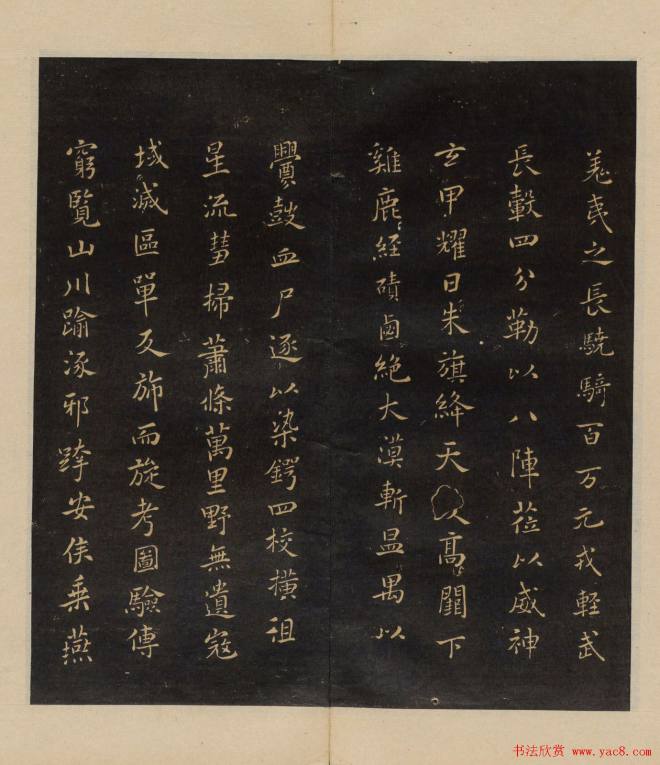 羌夷之長驍騎百万元戎軽武
長轂四分勒以八陣莅以威神
玄甲耀日朱旗絳天高闕下
雞鹿経磧鹵絶大漠斬昷禺以
釁鼓血尸逐以染鍔四校横徂
星流彗掃蕭條萬里野無遺寇
域滅區單反斾而旋考圖驗傳
窮覽山川踰涿邪跨安侯乗燕
书法欣赏 www.yac8.com